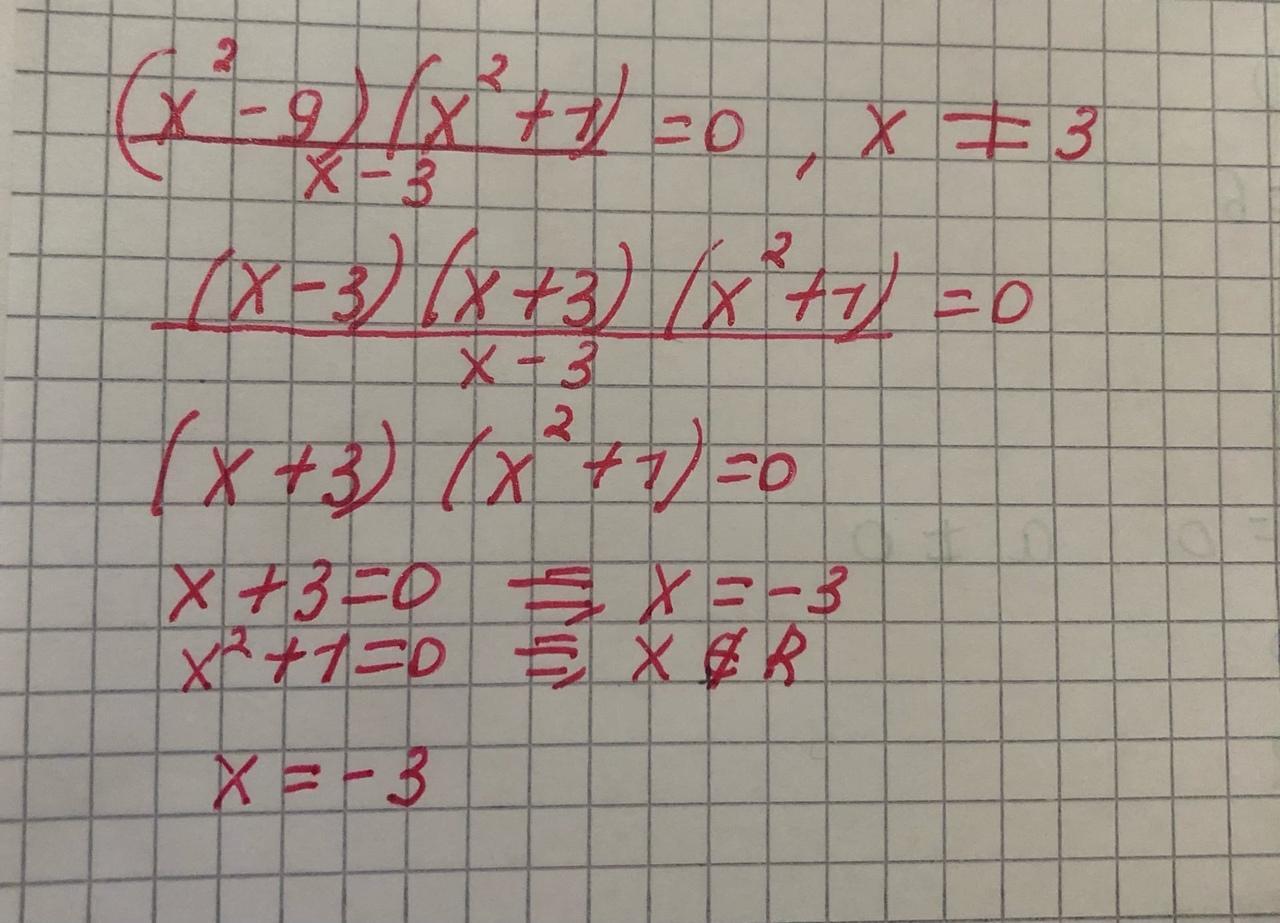 (x² - 9)(x² + 1)
x - 3
= 0 , x ≠ 3
(x - 3)(x + 3)(x² + 1)
x - 3
= 0
(x + 3)(x² + 1) = 0
x + 3 = 0 ≡, x = -3
x² + 1 = 0 ≡, x ∉ R
x = -3